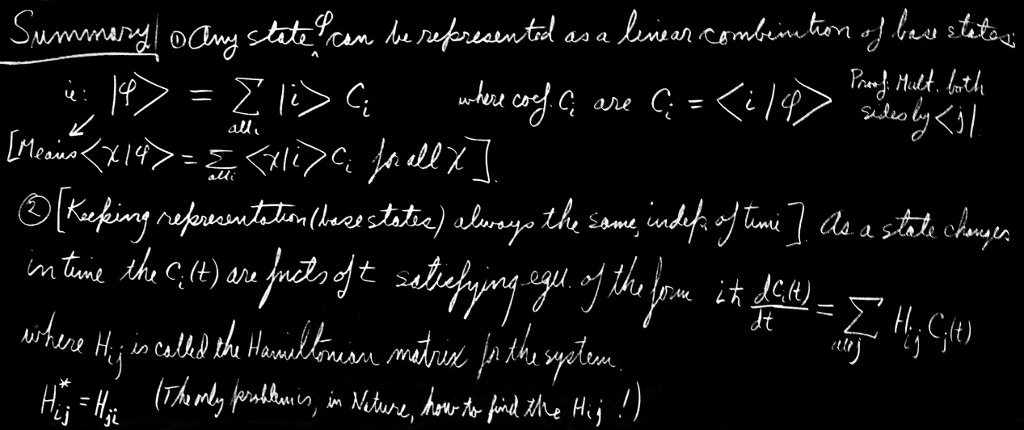 Summary ① Any state φ can be represented as a linear combination of base states;
ie: |φ> = ∑ |i> Cᵢ where coef. Cᵢ are Cᵢ = <i|φ> Proof: Mult. both
all i sides by <j|.
[Means <χ|φ> = ∑ <χ|i> Cᵢ for all χ].
all i
② [Keeping representation (base states) always the same, indep. of time]. As a state changes
in time the Cᵢ(t) are fncts of t satisfying equ. of the form iħ dCᵢ(t)/dt = ∑ Hᵢⱼ Cⱼ(t)
all j
where Hᵢⱼ is called the Hamiltonian matrix for the system.
Hᵢⱼ* = Hⱼᵢ (The only problem is, in Nature, how to find the Hᵢⱼ!)